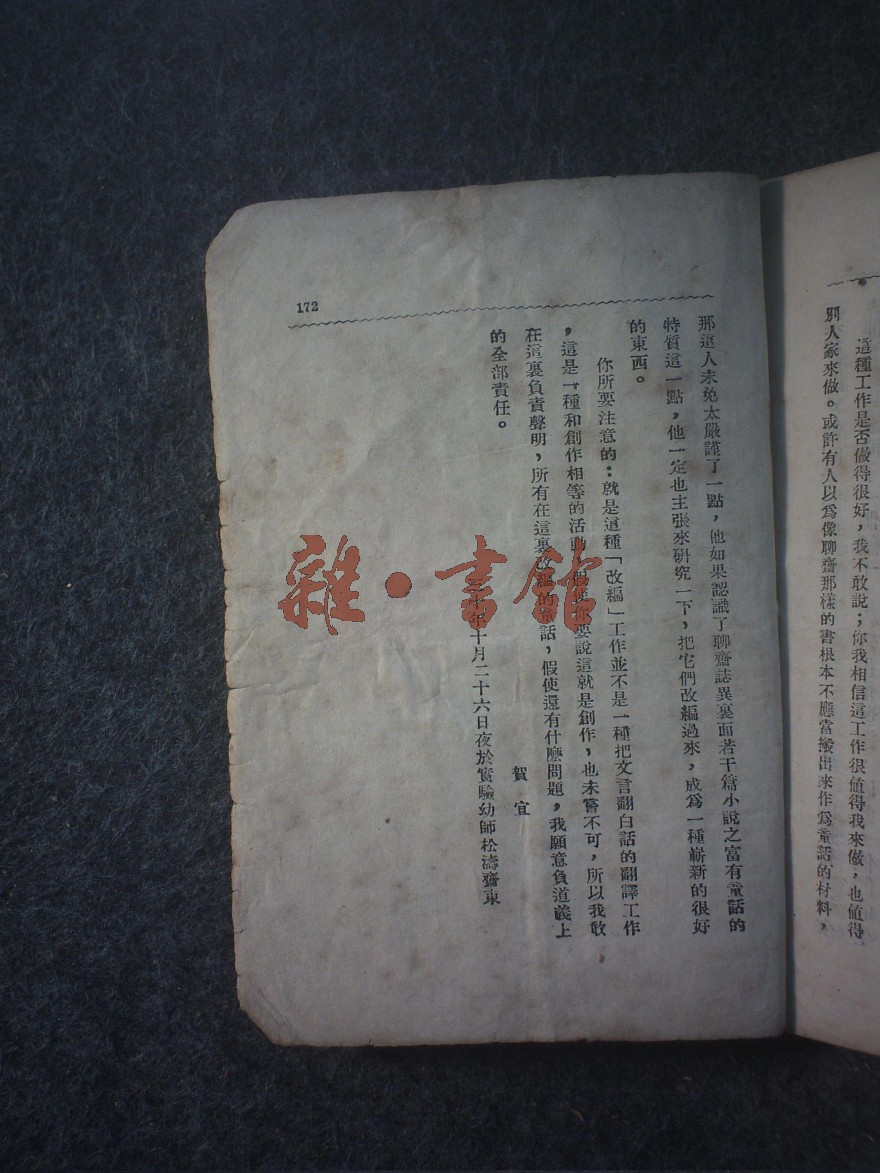 這種工作是否做得很好，我不敢說；你我相信這工作很值得我來做，也值得
別人家來做。或許有人以爲像聊齋那樣的書根本不應當撥出來作爲童話的材料，
172
那這人未免太嚴謹了一點，他如果認識了聊齋誌異裏面若干篇小說之富有童話的
特質這一點，他一定也主張來研究一下，把它們改編過來，成爲一種嶄新的很好
的東西。
你所要注意的：就是這種「改編」工作並不是一種把文言翻白話的翻譯工作
，這是一種和創作相等的活動，假使你要說這就是創作，也未嘗不可，所以我敢
在這裏負責聲明，所有在這裏改編的童話，假使還有什麽問題，我願意負道義上
的全部責任。
賀宜
年十月二十六日夜於實驗幼師松濤齋東
雜·書館